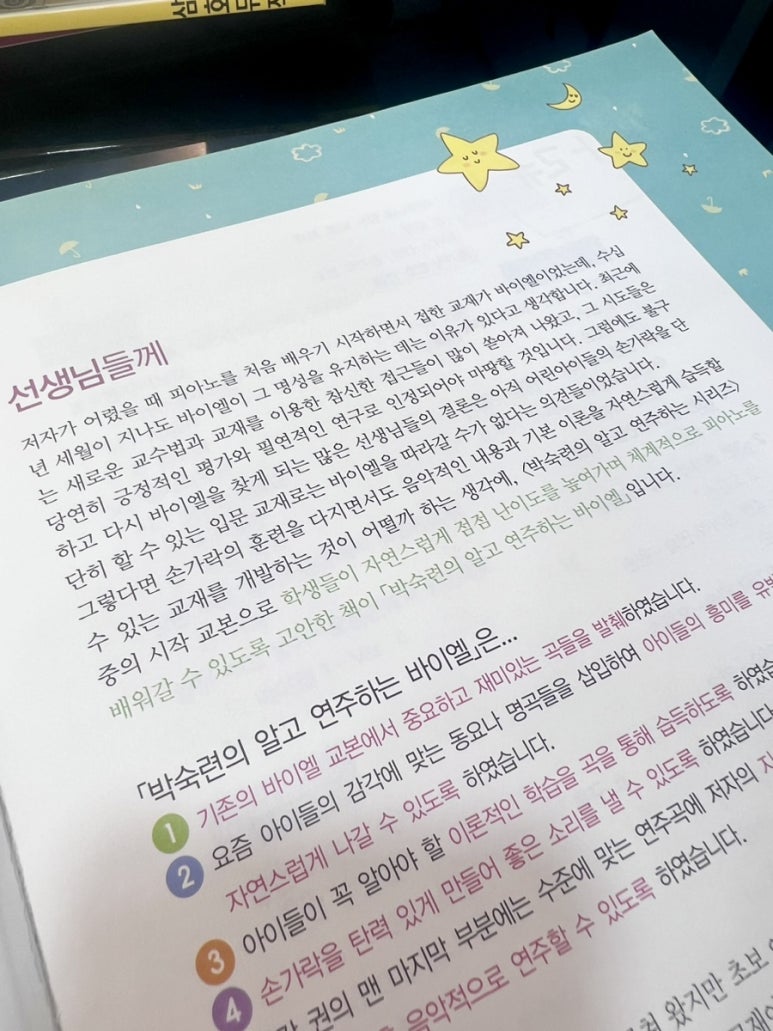 선생님들께
저자가 어렸을 때 피아노를 처음 배우기 시작하면서 접한 교재가 바이엘이었는데, 수십
년 세월이 지나도 바이엘이 그 명성을 유지하는 데는 이유가 있다고 생각합니다. 최근에
는 새로운 교수법과 교재를 이용한 참신한 접근들이 많이 쏟아져 나왔고, 그 시도들은
당연히 긍정적인 평가와 필연적인 연구로 인정되어야 마땅할 것입니다. 그럼에도 불구
하고 다시 바이엘을 찾게 되는 많은 선생님들의 결론은 아직 어린아이들의 손가락을 단
단히 할 수 있는 입문 교재로는 바이엘을 따라갈 수가 없다는 의견들이었습니다.
그렇다면 손가락의 훈련을 다지면서도 음악적인 내용과 기본 이론을 자연스럽게 습득할
수 있는 교재를 개발하는 것이 어떨까 하는 생각에, 〈박숙련의 알고 연주하는 시리즈〉
중의 시작 교본으로 학생들이 자연스럽게 점점 난이도를 높여가며 체계적으로 피아노를
배워갈 수 있도록 고안한 책이 「박숙련의 알고 연주하는 바이엘」입니다.
「박숙련의 알고 연주하는 바이엘」은...
1 기존의 바이엘 교본에서 중요하고 재미있는 곡들을 발췌하였습니다.
2 요즘 아이들의 감각에 맞는 동요나 명곡들을 삽입하여 아이들의 흥미를
자연스럽게 나갈 수 있도록 하였습니다.
3 아이들이 꼭 알아야 할 이론적인 학습을 곡을 통해 습득하도록
4 손가락을 탄력 있게 만들어 좋은 소리를 낼 수 있도록 하였습니다
권의 맨 마지막 부분에는 수준에 맞는 연주곡에 저자의
음악적으로 연주할 수 있도록 하였습니다.
왔지만 초보